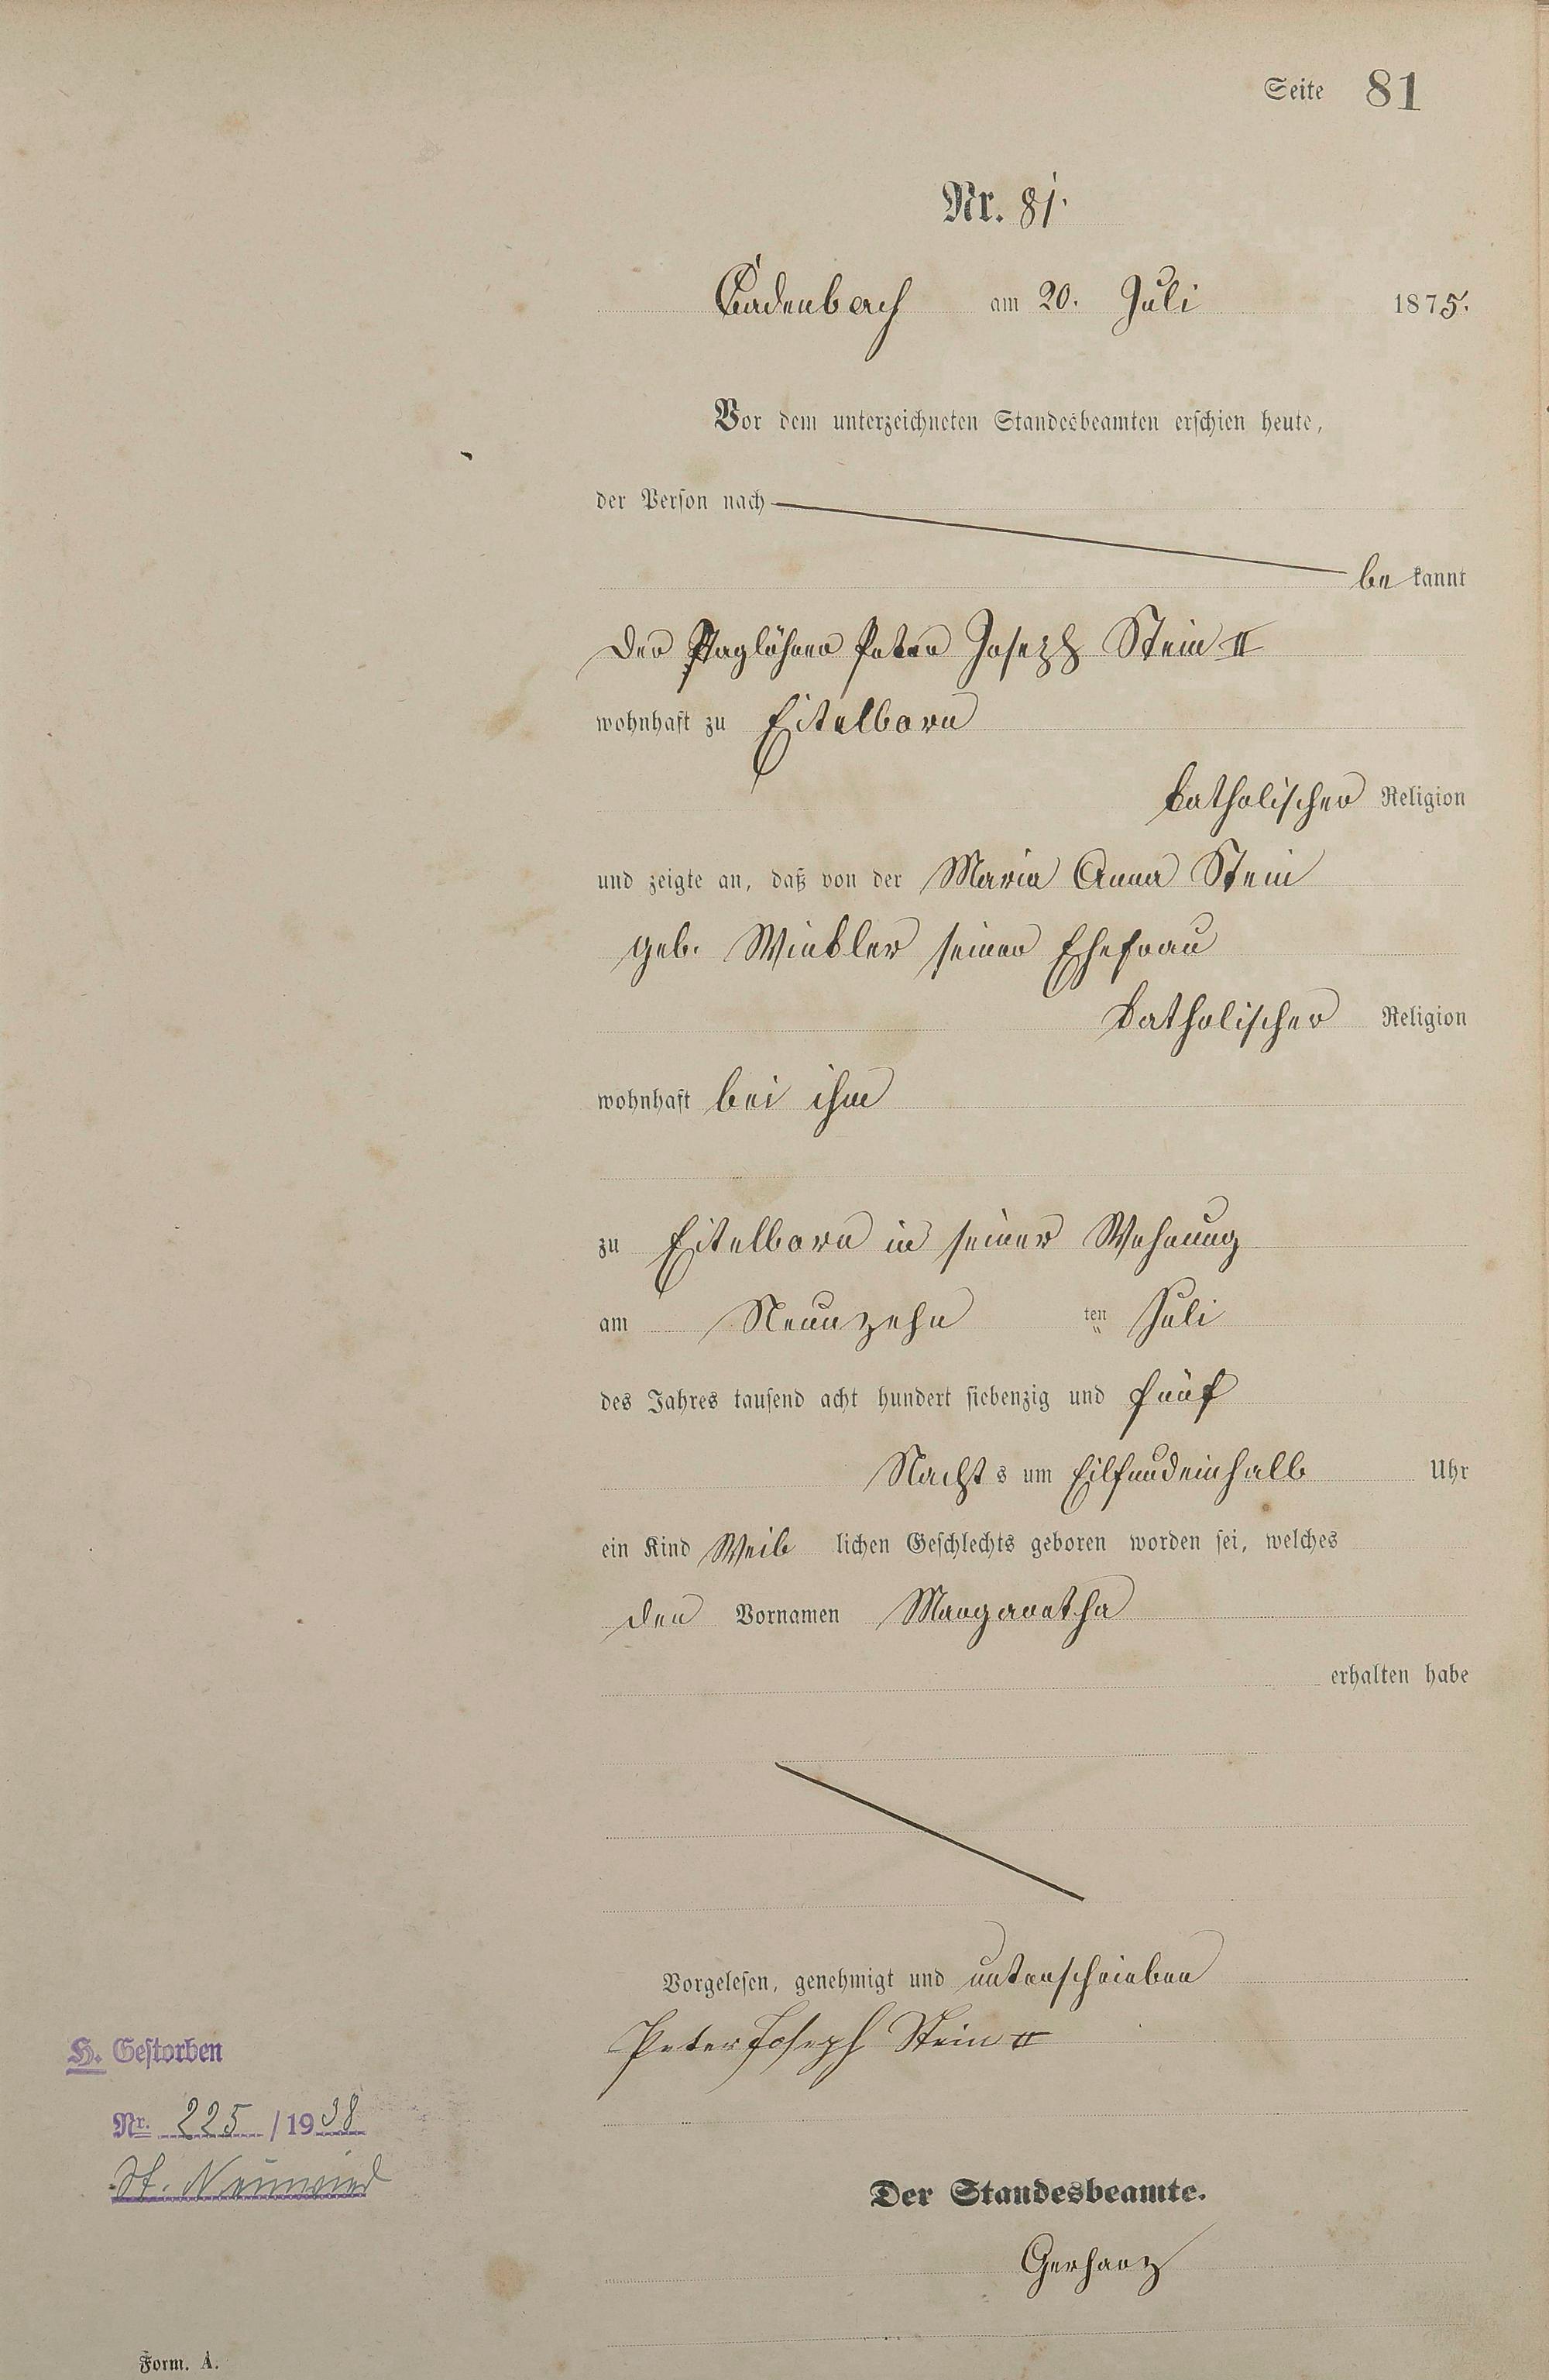 Seite 81
Nr. 81.
Cadenbach am 20. Juli 1875.
Vor dem unterzeichneten Standesbeamten erschien heute,
der Person nach
be kannt
der Taglöhner Peter Joseph Stein II
wohnhaft zu Eitelborn
katholischer Religion
und zeigte an, daß von der Maria Anna Stein
geb. Winkler seiner Ehefrau
katholischer Religion
wohnhaft bei ihm
zu Eitelborn in seiner Wohnung
am Neunzehn ten Juli
des Jahres tausend acht hundert siebenzig und fünf
Nacht s um Eilfundeinhalb Uhr
ein Kind Weib lichen Geschlechts geboren worden sei, welches
den Vornamen Margaretha
erhalten habe
Vorgelesen, genehmigt und unterschrieben
Peter Joseph Stein II
H. Gestorben
Nr. 225 / 1938
St. Neuwied
Der Standesbeamte.
Gerharz
Form. A.